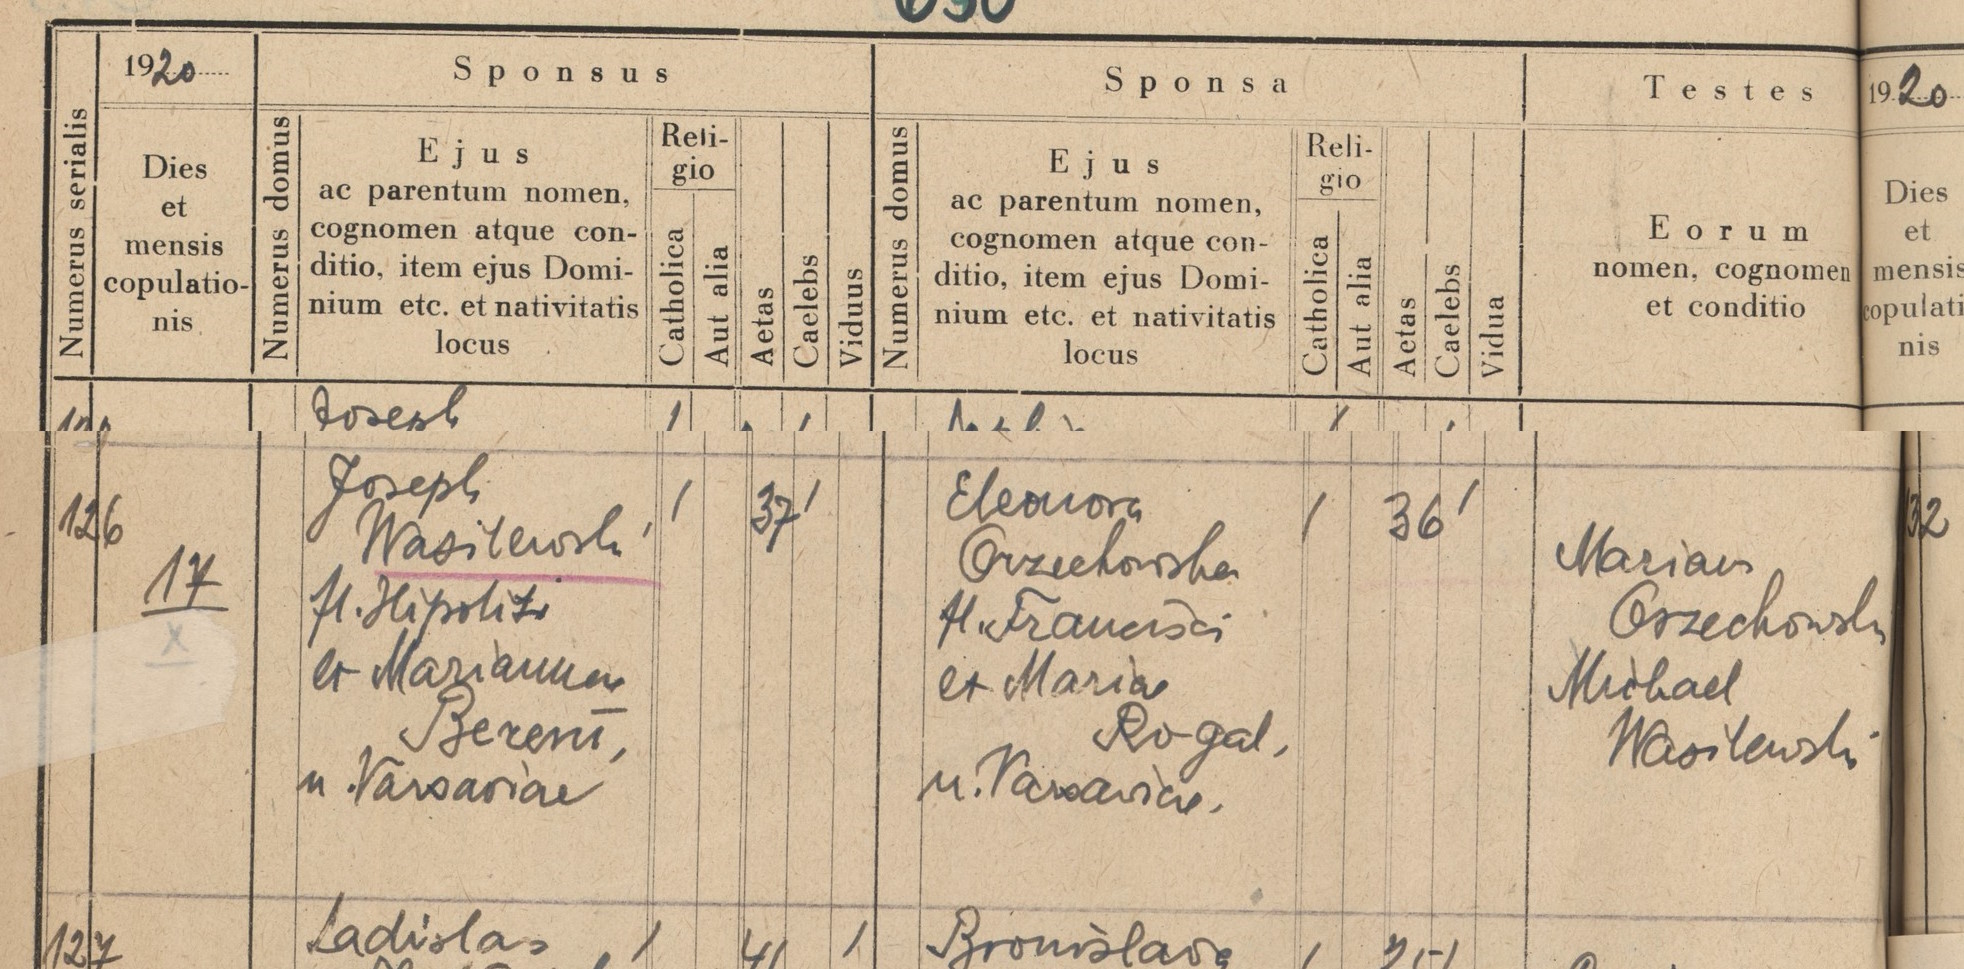 1920
Sponsus
Sponsa
Testes
1920
Numerus serialis
Dies
et
mensis
copulatio-
nis
Numerus domus
Ejus
ac parentum nomen,
cognomen atque con-
ditio, item ejus Domi-
nium etc. et nativitatis
locus
Reli-
gio
Catholica
Aut alia
Aetas
Caelebs
Viduus
Numerus domus
Ejus
ac parentum nomen,
cognomen atque con-
ditio, item ejus Domi-
nium etc. et nativitatis
locus
Reli-
gio
Catholica
Aut alia
Aetas
Caelebs
Vidua
Eorum
nomen, cognomen
et conditio
Dies
et
mensis
copulati
nis
Joseph
126
17
X
Joseph
Wasilewski
fl. Hipoliti
et Mariannae
Bereni,
n. Varsaviae
1
37
1
Eleonora
Orzechowska
fl. Francisci
et Mariae
Rogal,
n. Varsaviae.
1
36
1
Marian
Orzechowski
Michael
Wasilewski
132
127
Ladislas
1
41
1
Bronislava
1